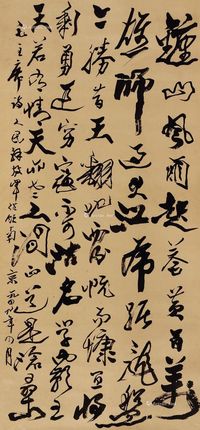 鐘山風雨起蒼黃百萬
雄師過大江虎踞龍盤
今勝昔天翻地覆慨而慷宜將
剩勇追窮寇不可沽名學霸王
天若有情天亦老人間正道是滄桑
毛主席詩人民解放軍佔領南京 年四月